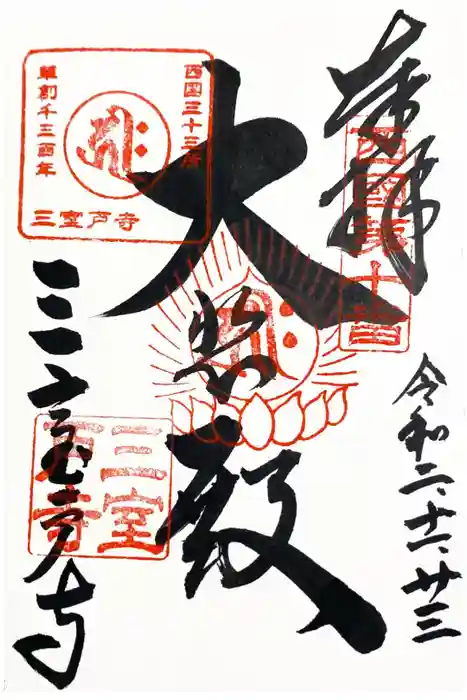 奉拝
西国第十番
令和二、十二、廿三
大悲殿
西国三十三所
草創千三百年
三室戸寺
三室戸寺
三室戸寺